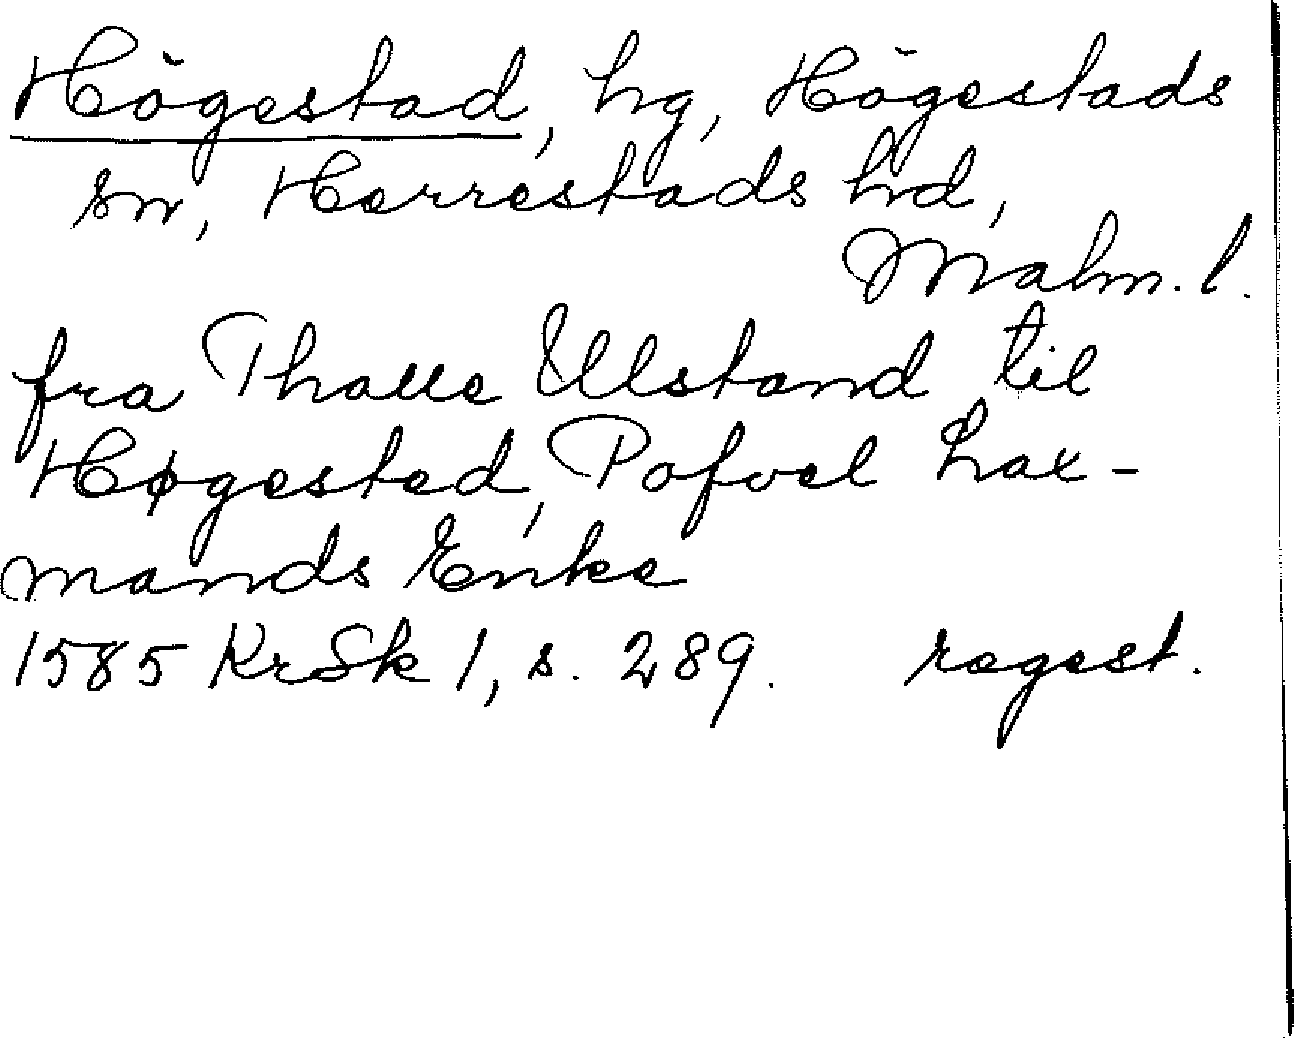 Högestad, hg, Högestads
sn, Herrestads hd,
Malm. l.
fra Thalle Ulstand til
Høgested, Pofvel Lax-
mands Enke
1585 KrSk 1, s. 289. regest.